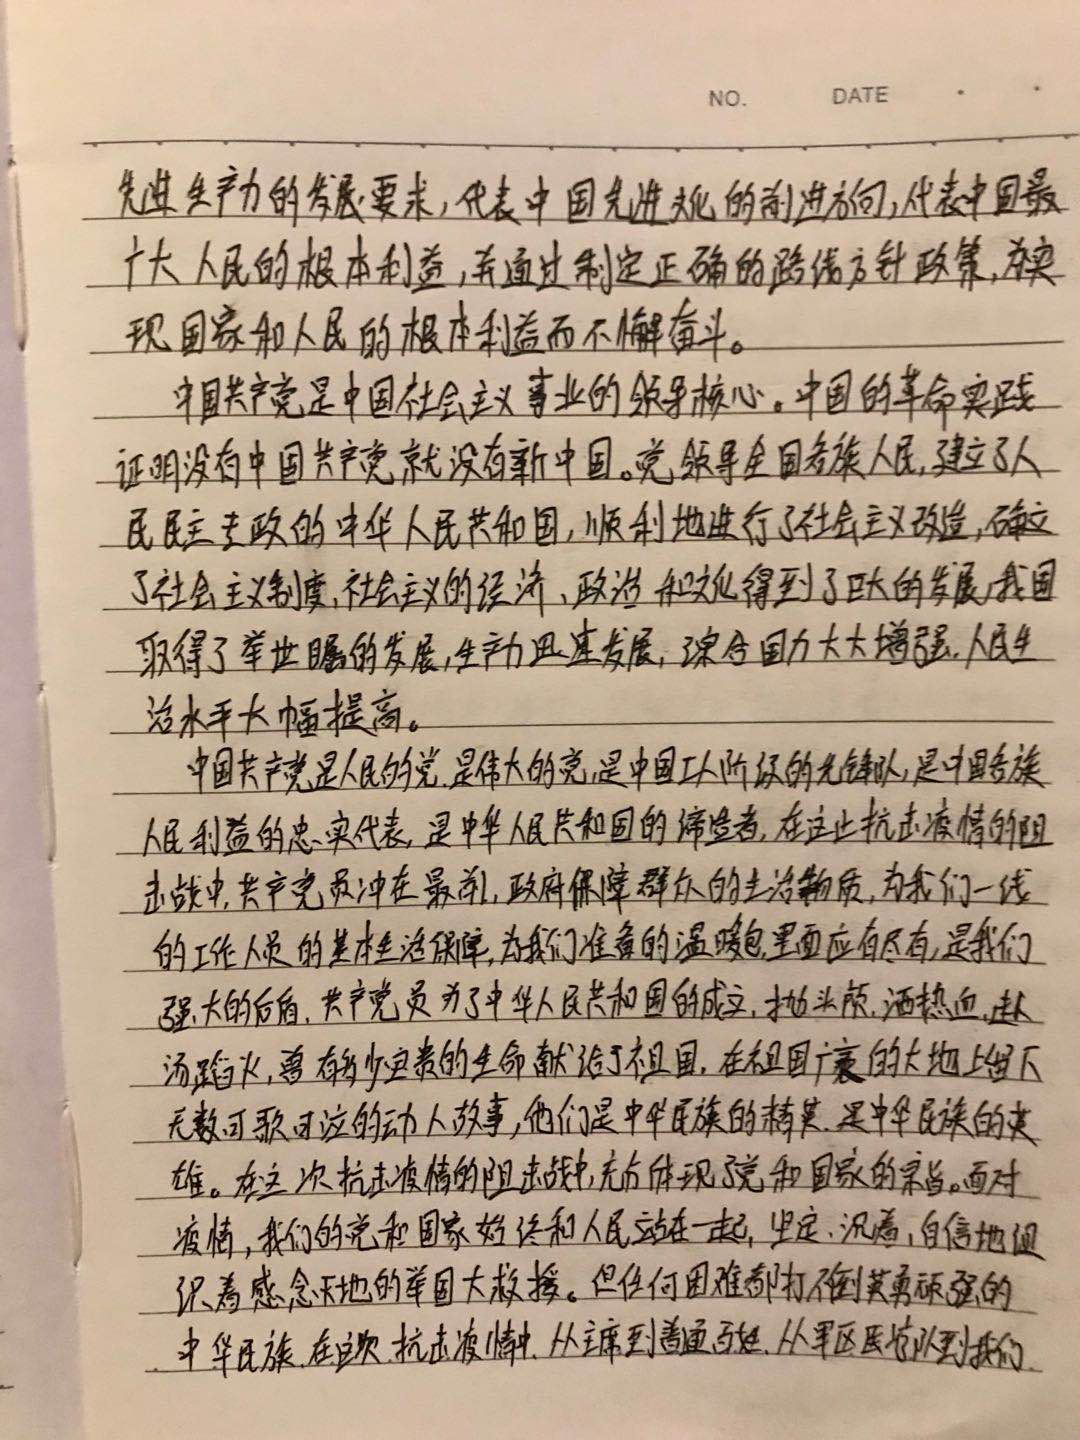 NO. DATE
先进生产力的发展要求,代表中国先进文化的前进方向,代表中国最
广大人民的根本利益,并通过制定正确的路线方针政策,为实
现国家和人民的根本利益而不懈奋斗。
中国共产党是中国社会主义事业的领导核心。中国的革命实践
证明没有中国共产党就没有新中国。党领导全国各族人民,建立了人
民民主专政的中华人民共和国,顺利地进行了社会主义改造,确立
了社会主义制度,社会主义的经济、政治和文化得到了巨大的发展,我国
取得了举世瞩的发展,生产力迅速发展,综合国力大大增强,人民生
活水平大幅提高。
中国共产党是人民的党,是伟大的党,是中国工人阶级的先锋队,是中国各族
人民利益的忠实代表,是中华人民共和国的缔造者,在这止抗击疫情的阻
击战中,共产党员冲在最前,政府保障群众的生活物质,为我们一线
的工作人员的基本生活保障,为我们准备的温暖包里面应有尽有,是我们
强大的后盾,共产党员为了中华人民共和国的成立,抛头颅,洒热血,赴
汤蹈火,曾有多少宝贵的生命献给了祖国,在祖国广袤的大地上留下
无数可歌可泣的动人故事,他们是中华民族的精英,是中华民族的英
雄。在这次抗击疫情的阻击战中,充分体现了党和国家的宗旨。面对
疫情,我们的党和国家始终和人民站在一起,坚定、沉着,自信地组
织着感念天地的举国大救援。但任何困难都打不倒英勇顽强的
中华民族,在这次抗击疫情中,从主席到普通百姓,从军区医疗队到我们